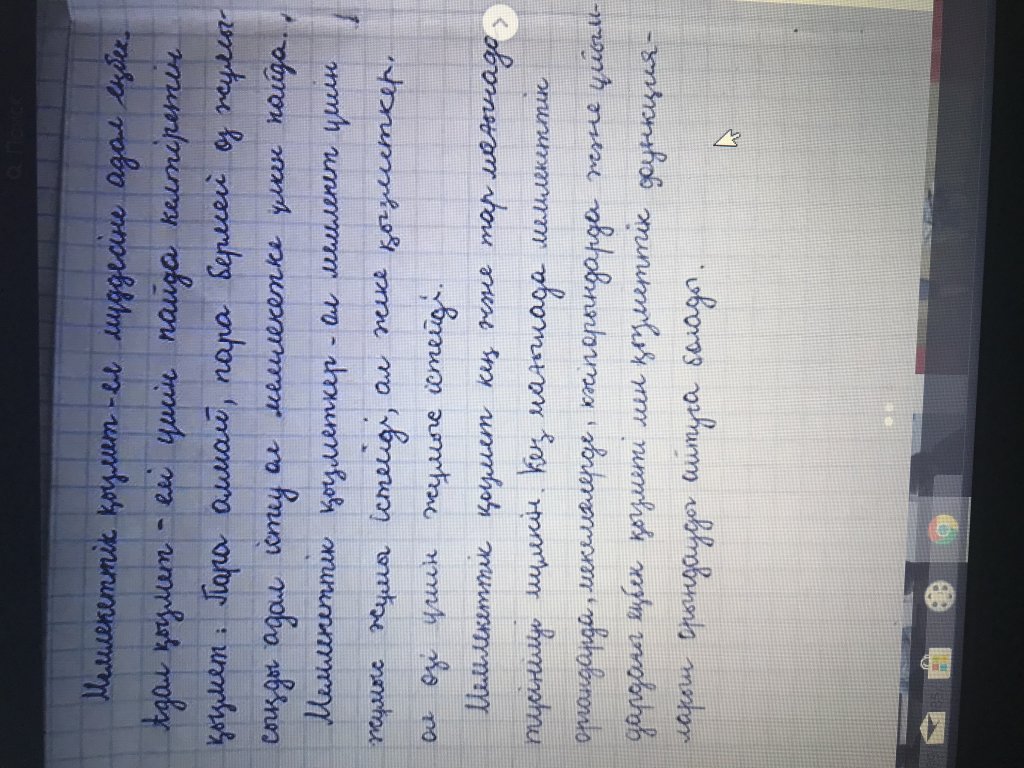 Мемлекеттік қызмет - ел мүддесіне адал еңбек.
Адал қызмет - ел үшін пайда келтіретін
қызмет: Пара алмай, пара бермей өз жұмы-
сыңды адал істеу ол мемлекетке үлкен пайда.
Мемлекеттік қызметкер - ол мемлекет үшін
жұмыс жұмыс істейді, ал жеке қызметкер.
ол өзі үшін жұмыс істейді.
Мемлекеттік қызмет кең және тар мағынада
түсінілуі мүмкін. Кең мағынада мемлекеттік
органдарда, мекемелерде, кәсіпорындарда және ұйым-
дардағы еңбек қызметі мен қызметтік функция-
ларын орындауды айтуға болады.